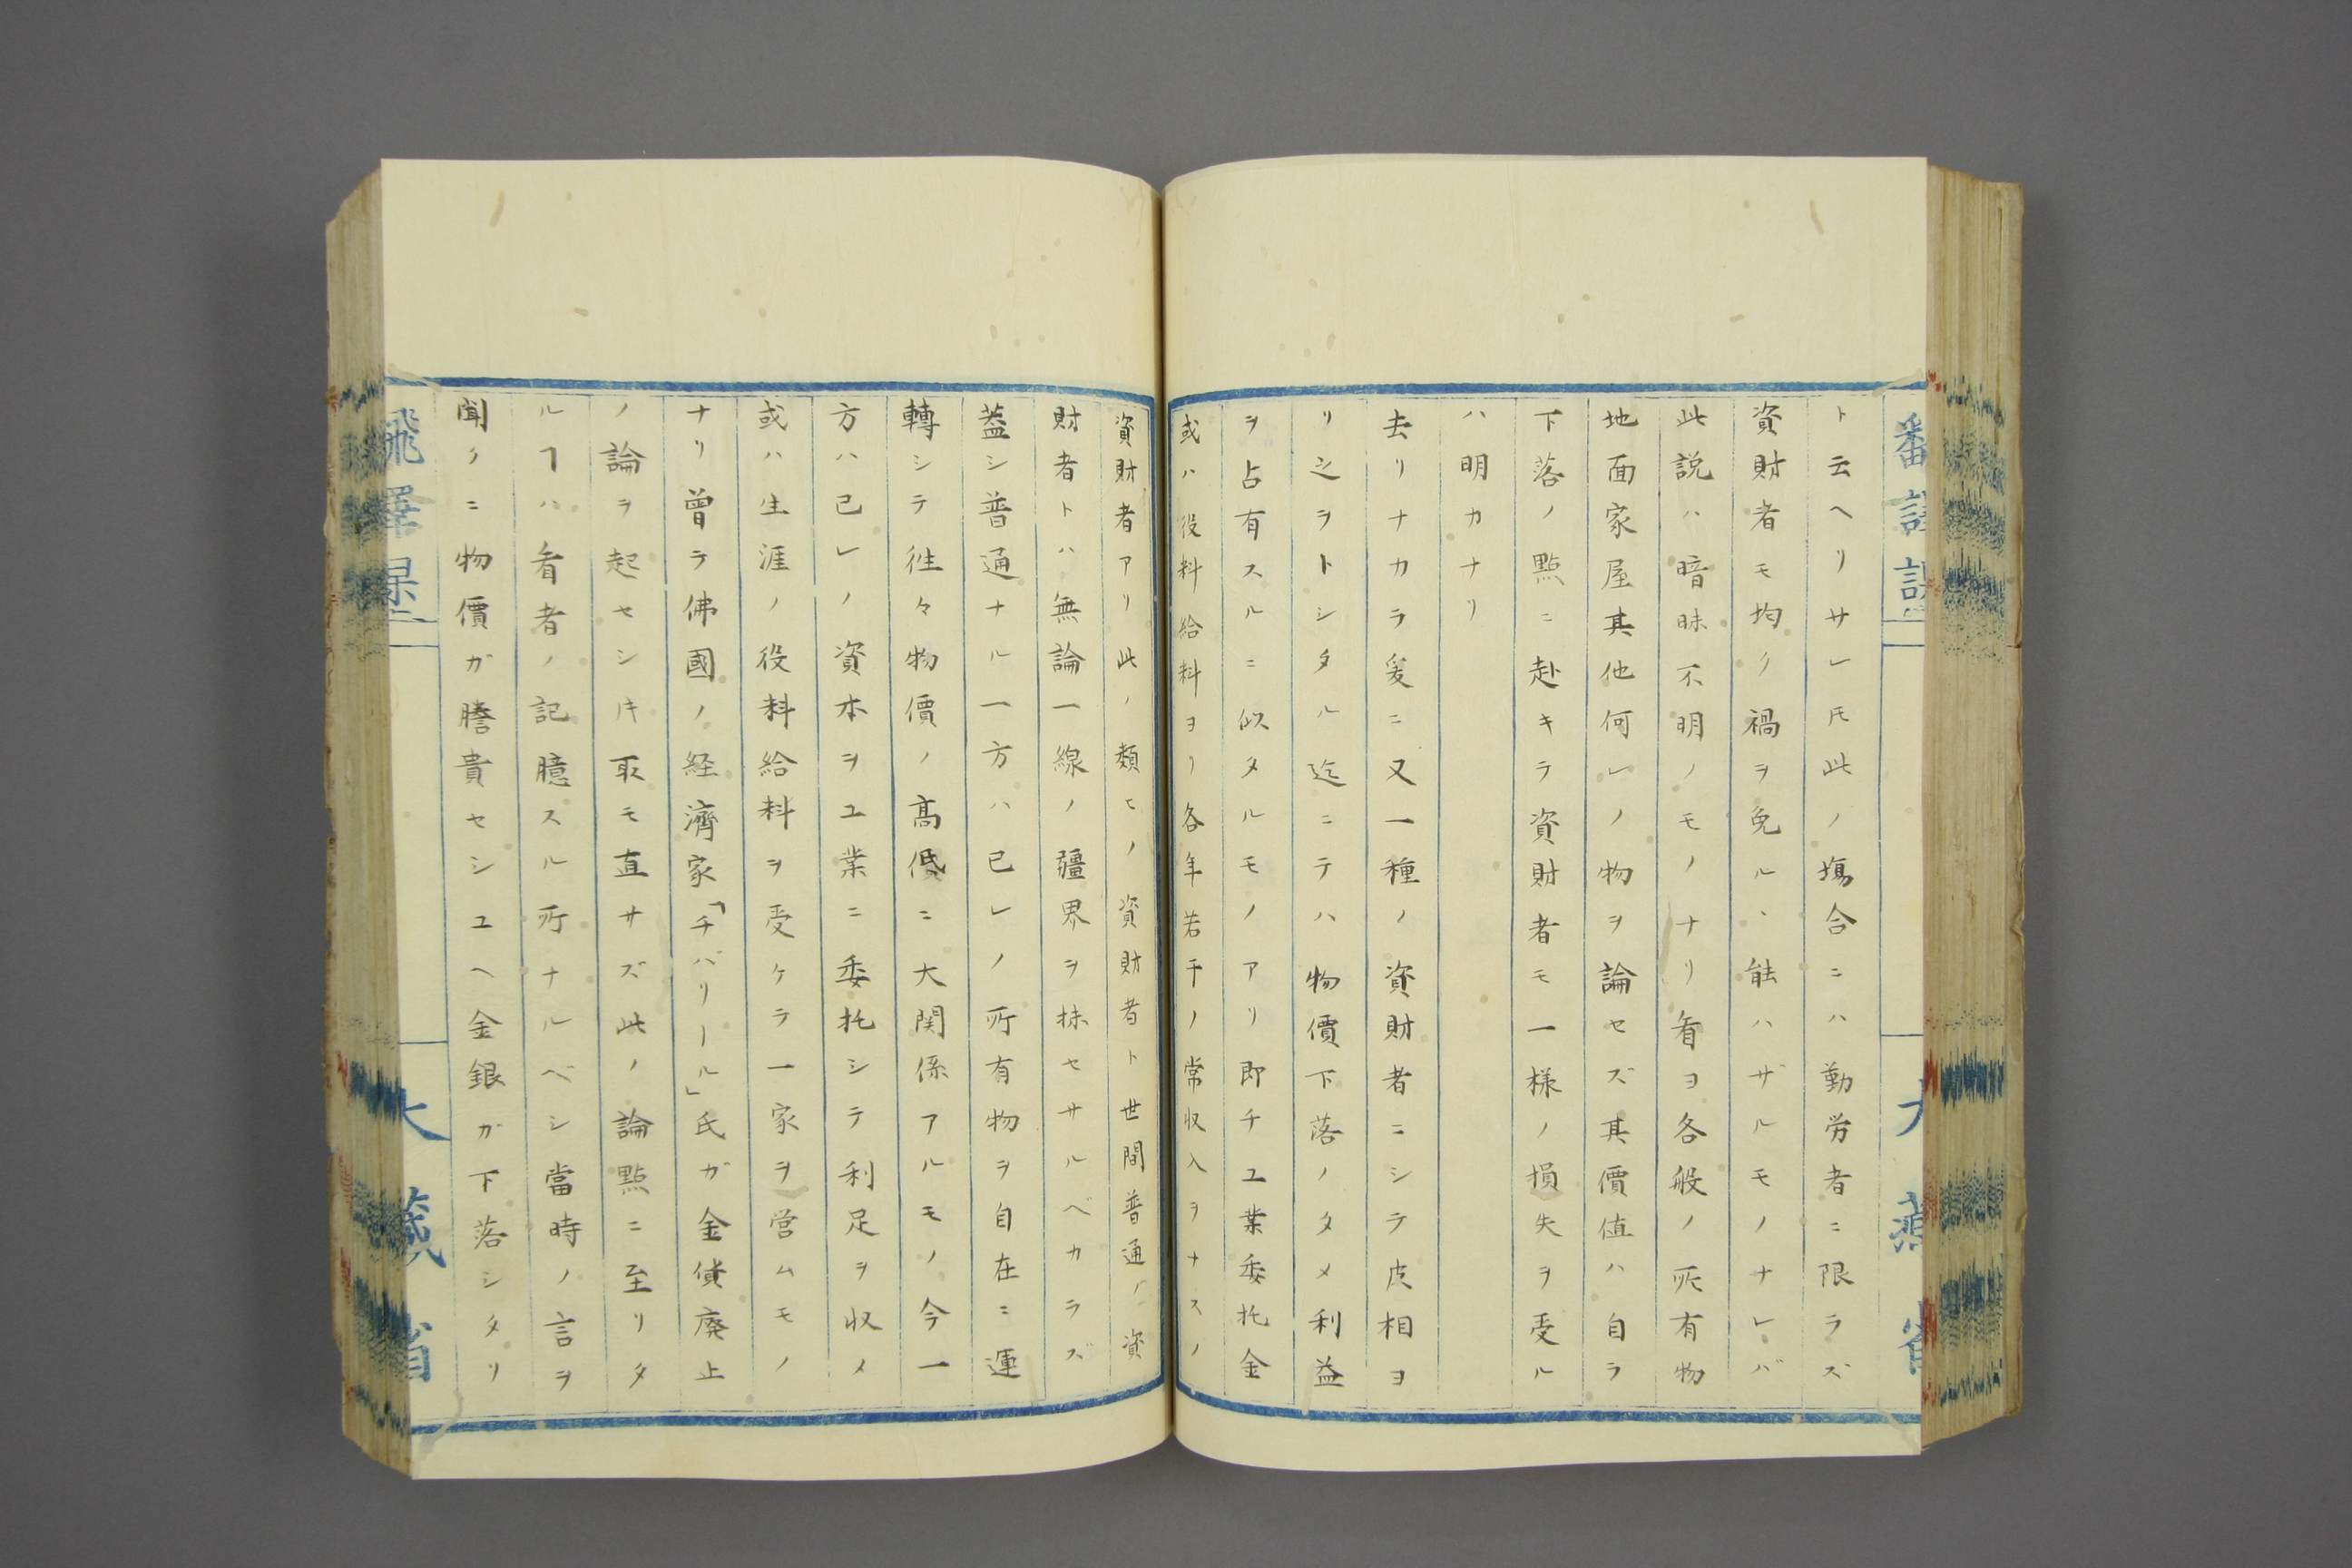 ト云ヘリサレ𪜈此ノ塲合ニハ勤労者ニ限ラズ
資財者モ均ク禍ヲ免ル丶能ハザルモノナレバ
此説ハ暗昧不明ノモノナリ看ヨ各般ノ所有物
地面家屋其他何レノ物ヲ論セズ其價値ハ自ラ
下落ノ點ニ赴キテ資財者モ一様ノ損失ヲ受ル
ハ明カナリ
去リナカラ爰ニ又一種ノ資財者ニシテ皮相ヨ
リ之ヲトシタル迄ニテハ物價下落ノタメ利益
ヲ占有スルニ似タルモノアリ即チ工業委托金
或ハ役料給料ヨリ各年若干ノ常収入ヲナスノ
資財者アリ此ノ類ヒノ資財者ト世間普通ノ資
財者トハ無論一線ノ疆界ヲ抹セサルベカラズ
蓋シ普通ナル一方ハ已レノ所有物ヲ自在ニ運
轉シテ徃々物價ノ高低ニ大関係アルモノ今一
方ハ已レノ資本ヲ工業ニ委托シテ利足ヲ収メ
或ハ生涯ノ役料給料ヲ受ケテ一家ヲ営ムモノ
ナリ曾テ佛國ノ経濟家「チバリール」氏ガ金貨廃止
ノ論ヲ起セシ䏮取モ直サズ此ノ論點ニ至リタ
ルヿハ看者ノ記臆スル所ナルベシ當時ノ言ヲ
聞クニ物價ガ騰貴セシユヘ金銀ガ下落シタリ
大藏省